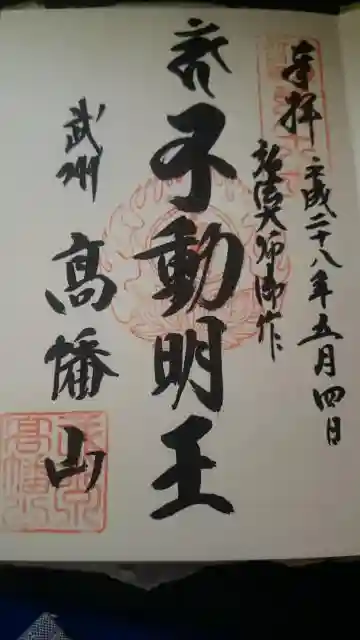 奉拝
平成二十八年五月四日
弘法大師御作
不動明王
武州
高幡山